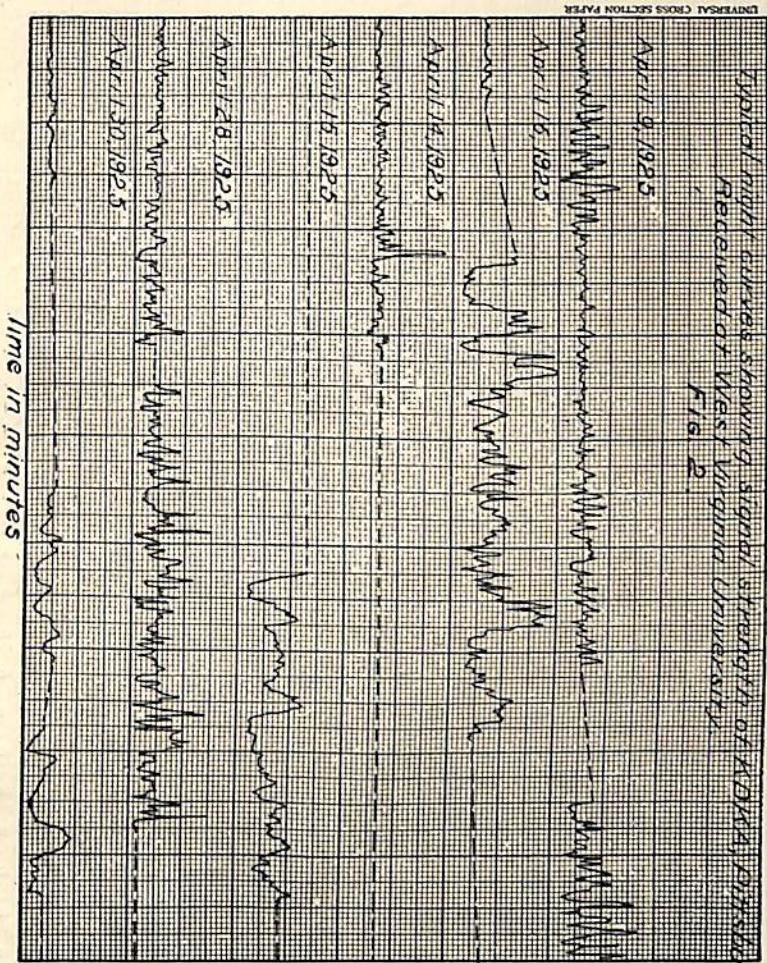 UNIVERSAL CROSS SECTION PAPER
Typical night curves showing signal strength of KDKA, Pittsb
Received at West Virginia University.
Fig. 2.
April 9, 1925
April 1925
April 14, 1925
April 1925
April 28, 1925
April 30, 1925
Time in minutes